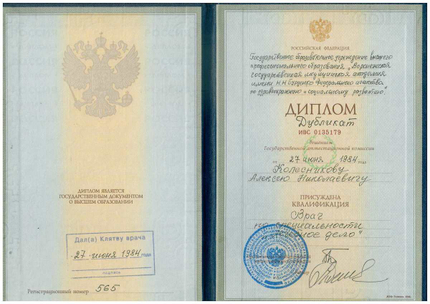 ДИПЛОМ ЯВЛЯЕТСЯ
ГОСУДАРСТВЕННЫМ ДОКУМЕНТОМ
О ВЫСШЕМ ОБРАЗОВАНИИ
Дал(а) Клятву врача
27 июня 1984 года
подпись
Регистрационный номер 565
РОССИЙСКАЯ ФЕДЕРАЦИЯ
Государственное образовательное учреждение высшего
профессионального образования
государственная медицинская академия
имени Н.Н. Бурденко Федерального агентства
по здравоохранению и социальному развитию
ДИПЛОМ
Дубликат
ИВС 0135179
Решением
Государственной аттестационной комиссии
"27" июня 1984
Колесникову
Алексею Николаевичу
ПРИСУЖДЕНА
КВАЛИФИКАЦИЯ
Врач
по специальности
"Лечебное дело"